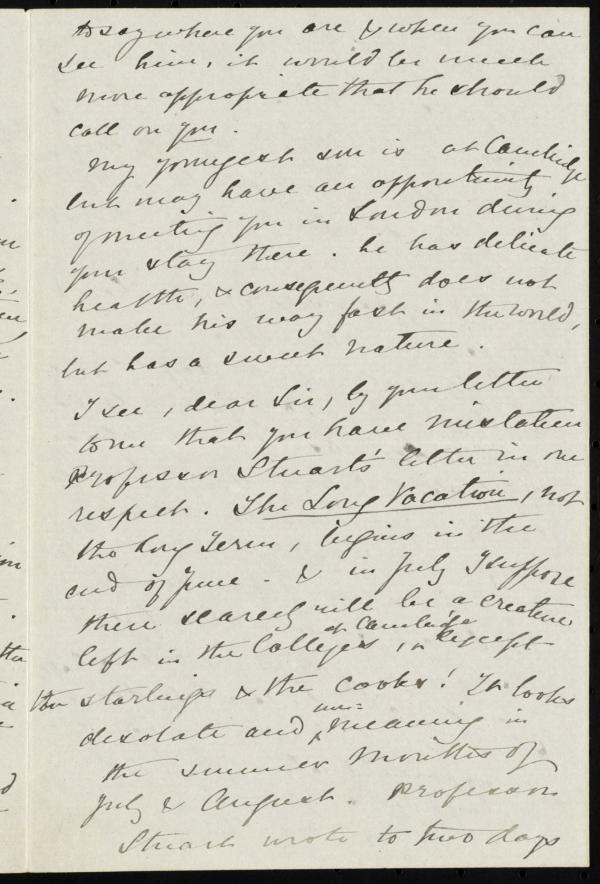 to say where you are & when you can
see him, it would be much
more appropriate that he should
call on you.
My youngest son is at Cambridge
but may have an opportunity
of meeting you in London during
your stay there. he has delicate
health, & consequently does not
make his way fast in the world,
but has a sweet nature.
I see, dear Sir, by your letter
to me that you have mistaken
Professor Stuart's letter in one
respect. The Long Vacation, not
the Long Term, begins in the
end of June. & in July I suppose
there scarcely will be a creature
left in the Colleges at Cambridge, except
the starlings & the cooks! It looks
desolate and un=meaning in
the summer months of
July & August. Professor
Stuart wrote to two days